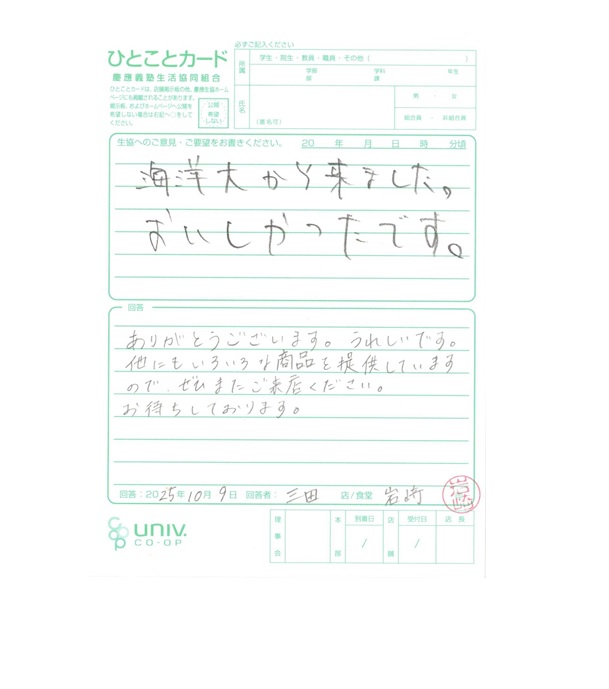 ひとことカード
慶應義塾生活協同組合
ひとことカードは、店頭掲示板の他、慶應生協ホーム
ページにも掲載されることがあります。
掲示板、およびホームページへ公開を
希望しない場合は右記へ○をして
ください。
公開
希望
しない
必ずご記入ください
所属
学生・院生・教員・職員・その他（ ）
学部 学科 年生
部 課
氏名
（匿名可）
男 ・ 女
組合員 ・ 非組合員
生協へのご意見・ご要望をお書きください。 20 年 月 日 時 分頃
海洋大から来ました。
おいしかったです。
回答
ありがとうございます。うれしいです。
他にもいろいろな商品を提供しています
ので、ぜひまたご来店ください。
お待ちしております。
回答：2025年10月9日 回答者： 三田 店/食堂 岩崎
岩崎
UNIV.
CO-OP
理事会
本部
到着日
/
店舗
受付日
/
店長